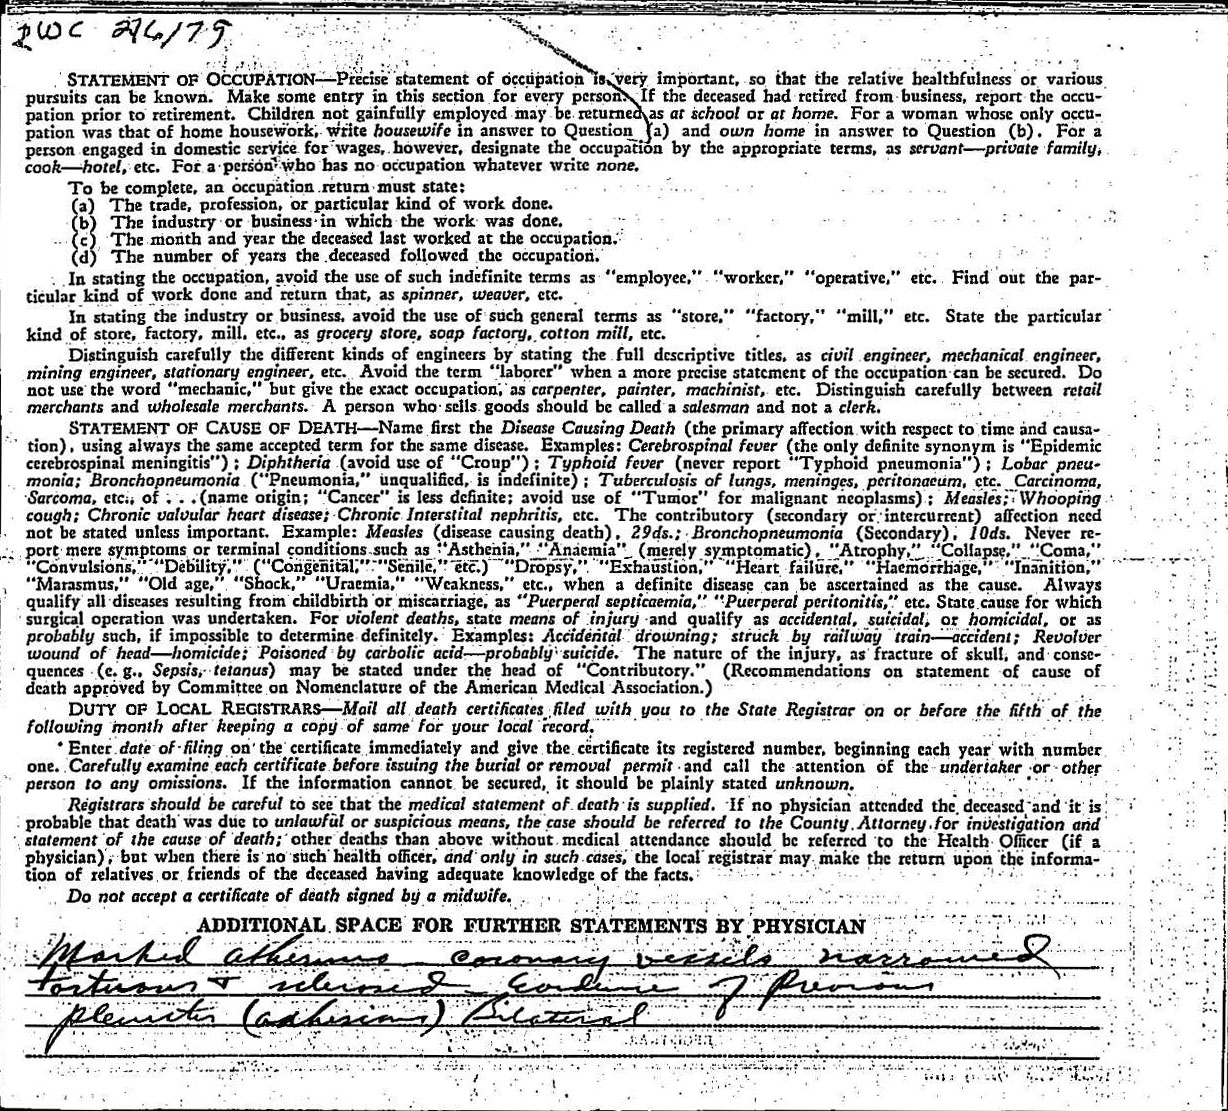 STATEMENT OF OCCUPATION—Precise statement of occupation is very important, so that the relative healthfulness or various
pursuits can be known. Make some entry in this section for every person. If the deceased had retired from business, report the occu-
pation prior to retirement. Children not gainfully employed may be returned as at school or at home. For a woman whose only occu-
pation was that of home housework, write housewife in answer to Question (a) and own home in answer to Question (b). For a
person engaged in domestic service for wages, however, designate the occupation by the appropriate terms, as servant—private family,
cook—hotel, etc. For a person who has no occupation whatever write none.
To be complete, an occupation return must state:
(a) The trade, profession, or particular kind of work done.
(b) The industry or business in which the work was done.
(c) The month and year the deceased last worked at the occupation.
(d) The number of years the deceased followed the occupation.
In stating the occupation, avoid the use of such indefinite terms as "employee," "worker," "operative," etc. Find out the par-
ticular kind of work done and return that, as spinner, weaver, etc.
In stating the industry or business, avoid the use of such general terms as "store," "factory," "mill," etc. State the particular
kind of store, factory, mill, etc., as grocery store, soap factory, cotton mill, etc.
Distinguish carefully the different kinds of engineers by stating the full descriptive titles, as civil engineer, mechanical engineer,
mining engineer, stationary engineer, etc. Avoid the term "laborer" when a more precise statement of the occupation can be secured. Do
not use the word "mechanic," but give the exact occupation, as carpenter, painter, machinist, etc. Distinguish carefully between retail
merchants and wholesale merchants. A person who sells goods should be called a salesman and not a clerk.
STATEMENT OF CAUSE OF DEATH—Name first the Disease Causing Death (the primary affection with respect to time and causa-
tion), using always the same accepted term for the same disease. Examples: Cerebrospinal fever (the only definite synonym is "Epidemic
cerebrospinal meningitis"); Diphtheria (avoid use of "Croup"); Typhoid fever (never report "Typhoid pneumonia"); Lobar pneu-
monia; Bronchopneumonia ("Pneumonia," unqualified, is indefinite); Tuberculosis of lungs, meninges, peritonaeum, etc. Carcinoma,
Sarcoma, etc., of . . . (name origin; "Cancer" is less definite; avoid use of "Tumor" for malignant neoplasms); Measles; Whooping
cough; Chronic valvular heart disease; Chronic Interstital nephritis, etc. The contributory (secondary or intercurrent) affection need
not be stated unless important. Example: Measles (disease causing death), 29ds.; Bronchopneumonia (Secondary), 10ds. Never re-
port mere symptoms or terminal conditions such as "Asthenia," "Anaemia" (merely symptomatic), "Atrophy," "Collapse," "Coma,"
"Convulsions," "Debility," ("Congenital," "Senile," etc.) "Dropsy," "Exhaustion," "Heart failure," "Haemorrhage," "Inanition,"
"Marasmus," "Old age," "Shock," "Uraemia," "Weakness," etc., when a definite disease can be ascertained as the cause. Always
qualify all diseases resulting from childbirth or miscarriage, as "Puerperal septicaemia," "Puerperal peritonitis," etc. State cause for which
surgical operation was undertaken. For violent deaths, state means of injury and qualify as accidental, suicidal, or homicidal, or as
probably such, if impossible to determine definitely. Examples: Accidental drowning; struck by railway train—accident; Revolver
wound of head—homicide; Poisoned by carbolic acid—probably suicide. The nature of the injury, as fracture of skull, and conse-
quences (e. g., Sepsis, tetanus) may be stated under the head of "Contributory." (Recommendations on statement of cause of
death approved by Committee on Nomenclature of the American Medical Association.)
DUTY OF LOCAL REGISTRARS—Mail all death certificates filed with you to the State Registrar on or before the fifth of the
following month after keeping a copy of same for your local record.
Enter date of filing on the certificate immediately and give the certificate its registered number, beginning each year with number
one. Carefully examine each certificate before issuing the burial or removal permit and call the attention of the undertaker or other
person to any omissions. If the information cannot be secured, it should be plainly stated unknown.
Registrars should be careful to see that the medical statement of death is supplied. If no physician attended the deceased and it is
probable that death was due to unlawful or suspicious means, the case should be referred to the County Attorney for investigation and
statement of the cause of death; other deaths than above without medical attendance should be referred to the Health Officer (if a
physician), but when there is no such health officer, and only in such cases, the local registrar may make the return upon the informa-
tion of relatives or friends of the deceased having adequate knowledge of the facts.
Do not accept a certificate of death signed by a midwife.
ADDITIONAL SPACE FOR FURTHER STATEMENTS BY PHYSICIAN
Marked coronary vessels narrowed
tortuous & sclerosed Evidence of Previous
(adhesions) Bilateral